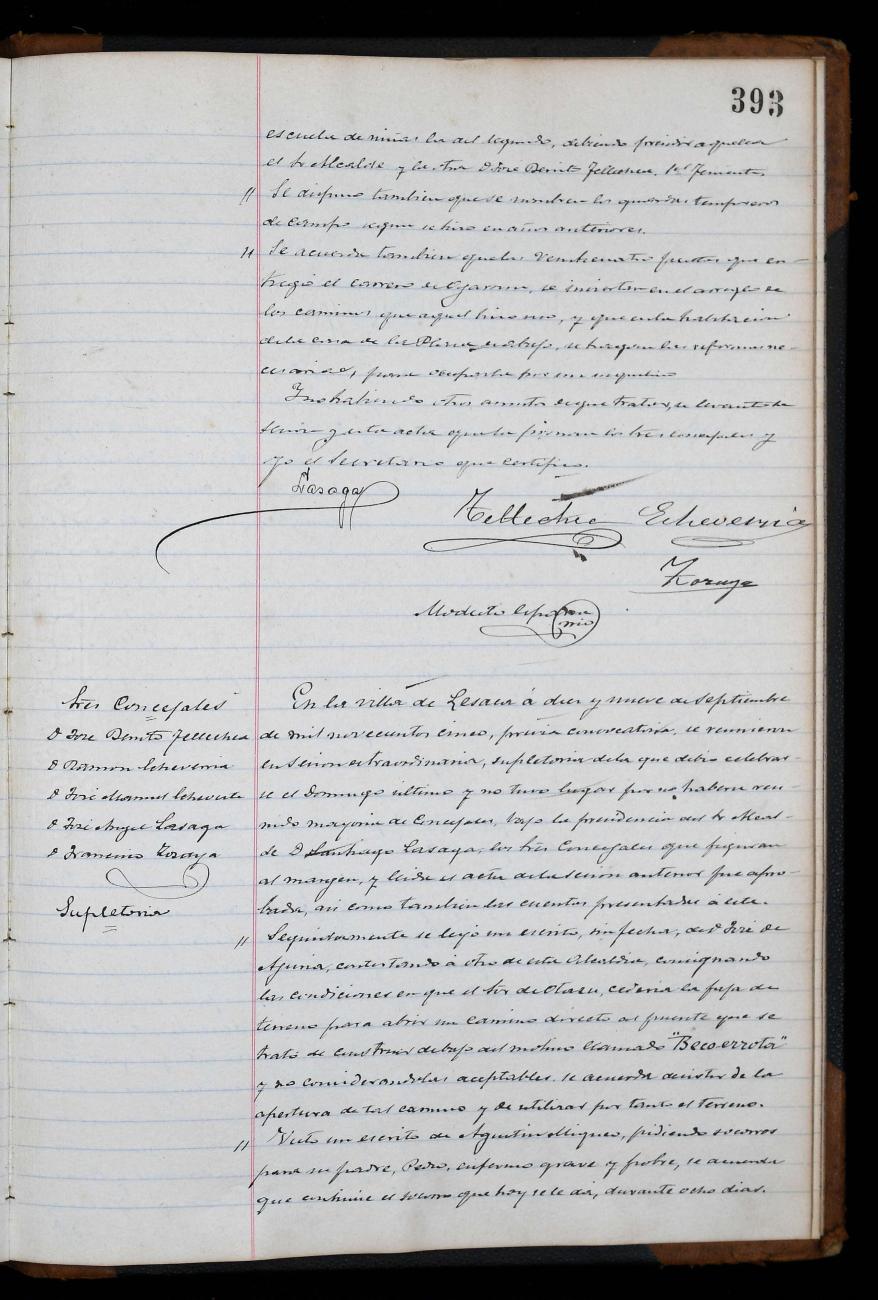 393
escuela de niñas la del segundo, debiendo presidir aquella
el Sr Alcalde y la otra D José Benito Tellechea, 1er Teniente.
// Se dispuso tambien que se nombren los guardas temporeros
de campo segun se hizo en años anteriores.
// Se acuerda tambien que las veinticuatro pesetas que en-
tregó el correo de Oyarzun, se inviertan en el arreglo de
los caminos que aquel hizo uso, y que en la habitacion
de la casa de la Plaza de abajo, se hagan las reformas ne-
cesarias, para ocuparla por un inquilino
Y no habiendo otros asuntos de que tratar, se levanta la
sesion y esta acta que la firman los tres concejales y
yo el Secretario que certifico.
Lasaga
Tellechea Echeverria
Zoraya
Modesto
tres Concejales
D José Benito Tellechea
D Ramon Echeverria
D José Manuel Echeveste
D José Angel Lasaga
D Francisco Zoraya
Supletoria
En la villa de Lesaca á diez y nueve de Septiembre
de mil novecientos cinco, prévia convocatoria, se reunieron
en sesion extraordinaria, supletoria de la que debio celebrar-
se el Domingo último y no tuvo lugar por no haberse reu-
nido mayoria de Concejales, bajo la presidencia del Sr Alcal-
de D Santiago Lasaga, los tres Concejales que figuran
al margen, y leida el acta de la sesion anterior fue apro-
bada, asi como tambien las cuentas presentadas á esta.
// Seguidamente se leyó un escrito, sin fecha, de D José de
Aguina, contestando á otro de esta Alcaldia, consignando
las condiciones en que el Sor de Otazu, cederia la faja de
terreno para abrir un camino directo al puente que se
trata de construir debajo del molino llamado "Becoerrota"
y no considerandolas aceptables, se acuerda desistir de la
apertura de tal camino y de utilizar por tanto el terreno.
// Visto un escrito de Agustin Migueo, pidiendo socorros
para su padre, Pedro, enfermo grave y pobre, se acuerda
que continúe el socorro que hoy se le dá, durante ocho dias.